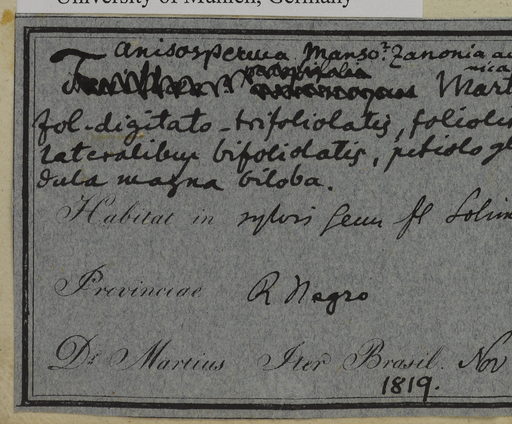 University of Munich, Germany
Tanisosperma Manso? Zanonia
Mart
fol. digitato-trifoliolatis, foliolis
lateralibus bifoliolatis, petiolo gl
dula magna biloba.
Habitat in sylvis secus fl Solim
Provinciae R Negro
Dr. Martius Iter Brasil. Nov
1819.